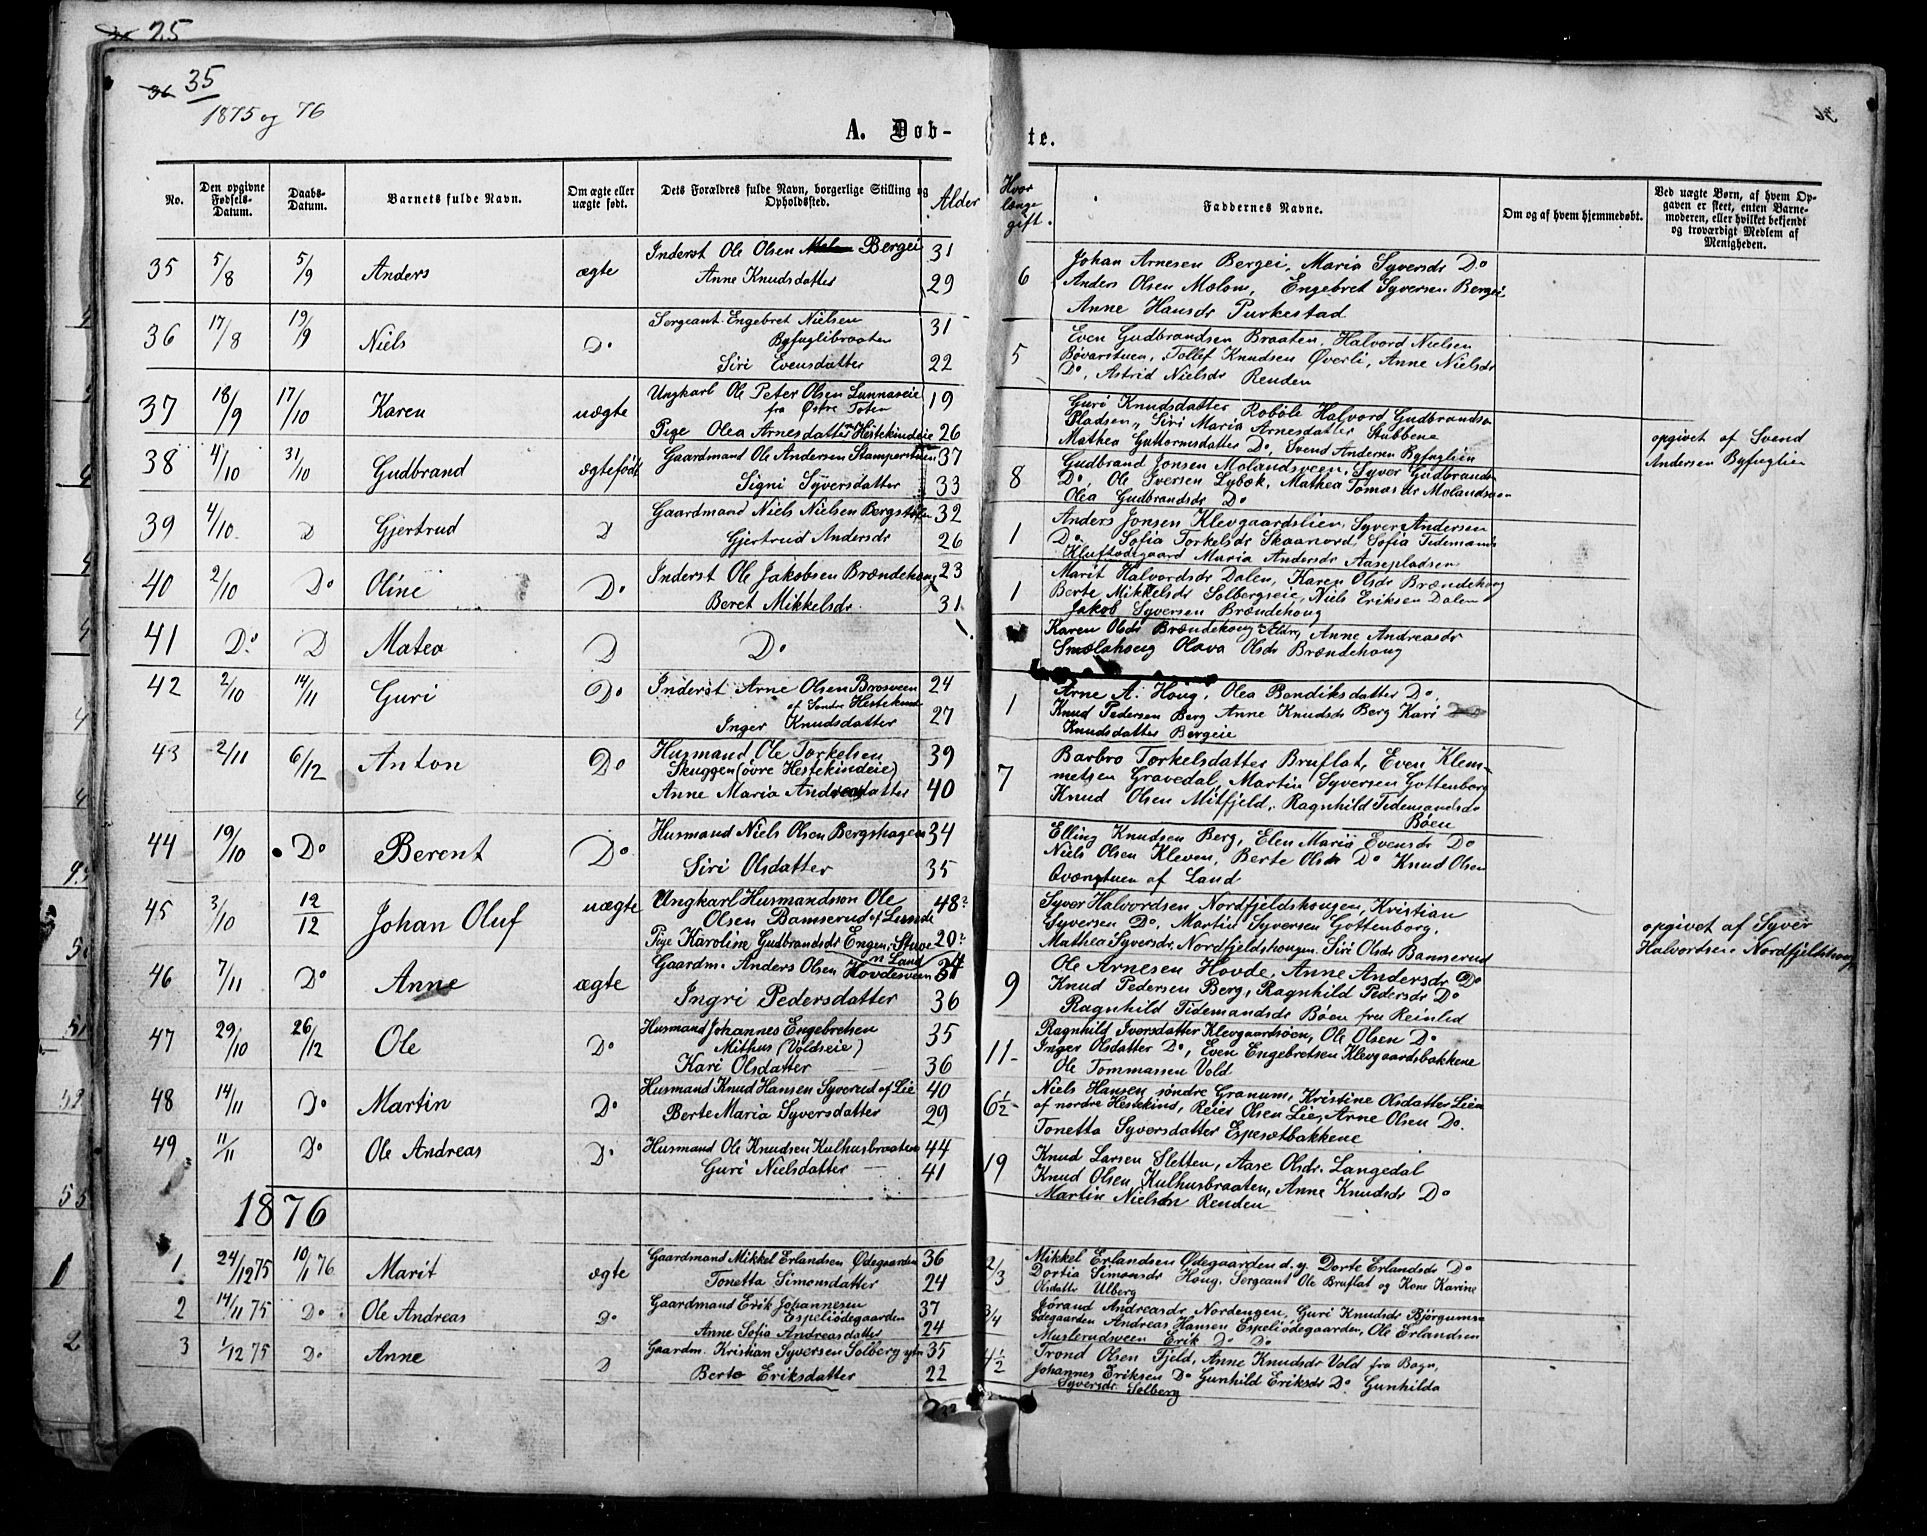 25
36 35
1875 og 76
A. Døb-
te.
No.
Den opgivne Fødsels-Datum.
Daabs-Datum.
Barnets fulde Navn.
Om ægte eller uægte født.
Dets Forældres fulde Navn, borgerlige Stilling og Opholdssted.
Alder
Hvor længe gift.
Faddernes Navne.
Om og af hvem hjemmedøbt.
Ved uægte Børn, af hvem Op-
gaven er skeet, enten Barne-
moderen, eller hvilket bekjendt
og troværdigt Medlem af
Menigheden.
35 5/8 5/9 Anders ægte Inderst Ole Olsen Bergei 31
Anne Knudsdatter 29
6 Johan Arnesen Bergei, Maria Syversdr Do
Anders Olsen Mølom, Engebret Syversen Bergei
Anne Hansdr Purkestad
36 17/8 19/9 Niels Do Sergeant Engebret Nielsen 31
Byfuglibraaten
Siri Evensdatter 22
5 Even Gudbrandsen Braaten, Halvord Nielsen
Bøvarstuen, Tollef Knudsen Øverli, Anne Nielsdr
Do, Astrid Nielsdr Renden
37 18/9 17/10 Karen uægte Ungkarl Ole Peter Olsen Lunnaseie 19
fra Østre Toten
Pige Olea Arnesdatter Hestekindeie 26
Guri Knudsdatter Robøle Halvord Gudbrandsen
Pladsen, Siri Maria Arnesdatter Stubbene
Mathea Guttormsdatter Do, Svend Andersen Byfuglien
opgivet af Svend
Andersen Byfuglien
38 4/10 31/10 Gudbrand ægtefødt Gaardmand Ole Andersen Stamperstuen 37
Signi Syversdatter 33
8 Gudbrand Jonsen Molandsveen, Syver Gudbrands
Do, Ole Iversen Lybæk, Mathea Tomasdr Molandsveen
Olea Gudbrandsdr Do
39 4/10 D Gjertrud D Gaardmand Niels Nielsen Bergstølen 32
Gjertrud Andersdr 26
1 Anders Jonsen Klevgaardslien, Syver Andersen
Do Sofia Torkelsdr Skaanord, Sofia Tidemans
Kluftødegaard Maria Andersdr Aasepladsen
40 2/10 Do Oline Do Inderst Ole Jakobsen Brændehoug 23
Beret Mikkelsdr. 31
1 Marit Halvordsdr Dalen, Karen Olsdr Brændehoug
Berte Mikkelsdr Solbergseie, Niels Eriksen Dalen
Jakob Syversen Brændehoug
41 Do D Matea D Do
Karen Olsdr Brændehoug Eldr, Anne Andreasdr
Smælahoug Olava Olsdr Brændehoug
42 2/10 14/11 Guri Do Inderst Arne Olsen Brosveen 24
af Søndre Hestekind
Inger Knudsdatter 27
1 Arne A. Houg, Olea Bendiksdatter Do,
Knud Pedersen Berg Anne Knudsdr Berg Kari
Knudsdatter Bergeie
43 2/11 6/12 Anton Do Husmand Ole Torkelsen 39
Skuggen (øvre Hestekindeie)
Anne Maria Andreasdatter 40
7 Barbro Torkelsdatter Bruflat, Even Klem-
metsen Gravedal, Martin Syversen Gottenborg
Knud Olsen Mitfjeld, Ragnhild Tidemandsdr
Bøen
44 19/10 Do Berent Do Husmand Niels Olsen Bergshagen 34
Siri Olsdatter 35
Elling Knudsen Berg, Elen Maria Evensdr Do
Niels Olsen Kleven, Berte Olsdr Do Knud Olsen
Qvænstuen af Land
45 3/10 12/12 Johan Oluf uægte Ungkarl Husmandssøn Ole 48?
Olsen Bamserud af Lunde
Pige Karoline Gudbrandsdr Engen, Stuve 20?
n Land
Syver Halvordsen Nordfjeldshougen, Kristian
Syversen Do, Martin Syversen Gottenborg,
Mathea Syversdr, Nordfjeldshougen, Siri Olsdr Bannerud
opgivet af Syver
Halvordsen Nordfjeldshoug
46 7/11 Do Anne ægte Gaardm. Anders Olsen Hovdesveen 34
Ingri Pedersdatter 36
9 Ole Arnesen Hovde, Anne Andersdr Do
Knud Pedersen Berg, Ragnhild Pedersdr Do
Ragnhild Tidemandsdr Bøen fra Reinlid
47 29/10 26/12 Ole Do Husmand Johannes Engebretsen 35
Mithus (Voldseie)
Kari Olsdatter 36
11- Ragnhild Iversdatter Klevgaardsøen, Ole Olsen Do
Inger Olsdatter Do, Even Engebretsen Klevgaardsbakkene
Ole Tommassen Vold
48 14/11 Do Martin Do Husmand Knud Hansen Syverud af Lie 40
Berte Maria Syversdatter 29
6½- Niels Hansen, søndre Granum, Kristine Olsdatter Lien
af nordre Hestekind, Reier Olsen Lie, Arne Olsen Do.
Tonetta Syversdatter Espesætbakkene
49 11/11 Do Ole Andreas Do Husmand Ole Knudsen Kulhusbraaten 44
Guri Nielsdatter 41
19 Knud Larsen Sletten, Aase Olsdr. Langedal
Knud Olsen Kulhusbraaten, Anne Knudsdr Do
Martin Nielsen Renden
1876
1 24/12 75 10/1 76 Marit ægte Gaardmand Mikkel Erlandsen Ødegaarden 36
Tonetta Simonsdatter 24
2/3 Mikkel Erlandsen Ødegaarden d. y. Dorte Erlandsdr Do
Dortia Simonsdr Houg, Sergeant Ole Bruflat og Kone Karine
Olsdatter Ulberg
2 14/11 75 Do Ole Andreas Do Gaardmand Erik Johannesen 37
Espeliødegaarden
Anne Sofia Andreasdatter 24
3/4 Jørand Andreasdr Nordengen, Guri Knudsdr Bjørgums
ødegaarden Andreas Hansen Espeliødegaarden, Ole Erlandsen
Muslerudsveen Erik Do Do
3 1/12 75 Do Anne D Gaardm. Kristian Syversen Solberg ytr 35
Berte Eriksdatter 22
4½ Trond Olsen Fjeld, Anne Knudsdr Vold fra Bagn,
Johannes Eriksen Do Gunhild Eriksdr Do Gunhilda
Syversdr Solberg